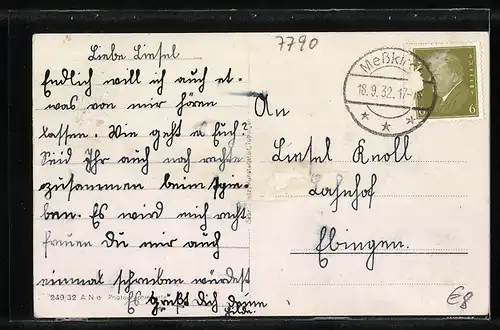 7790
Liebe Liesel
Endlich will ich auch et-
was von mir hören
lassen. Wie geht es Euch?
Seid Ihr auch noch recht
zusammen beim
ben. Es wird mich recht
freuen Du mir auch
einmal schreiben würdest
Es grüßt Dich Deine
Hilde.
240/32 A.N.
An
Liesel Knoll
Bahnhof
Ebingen.
Meßkirch
18.9.32.17-
6
€8